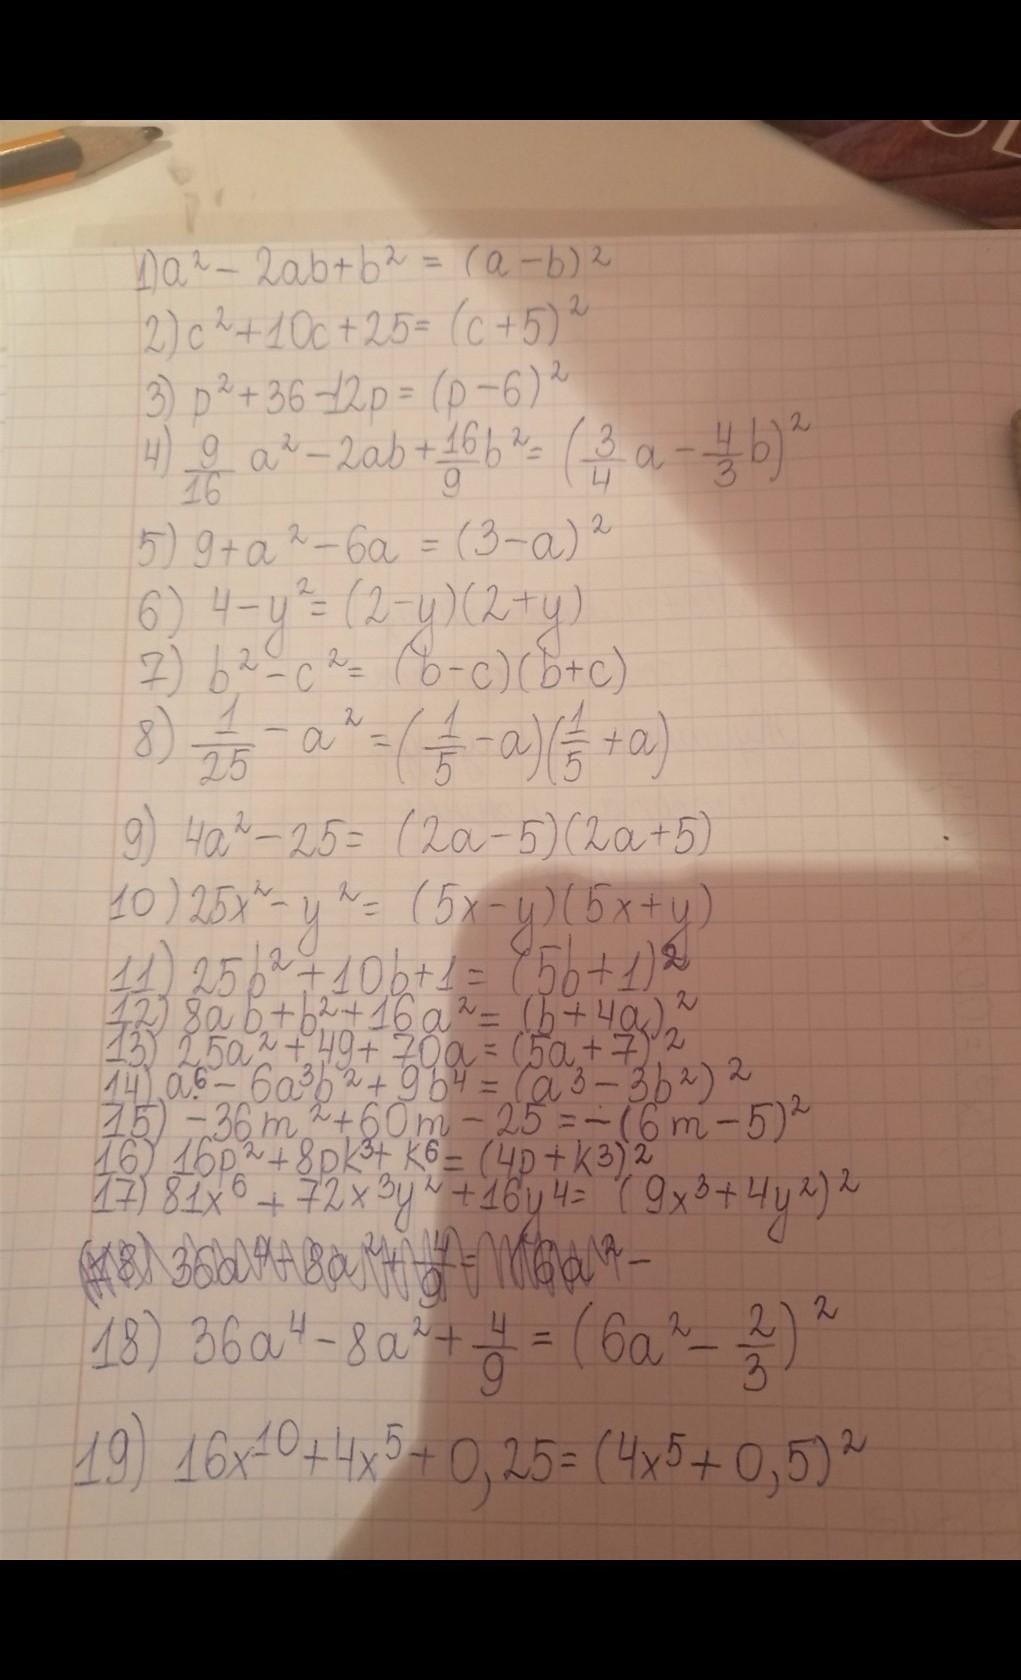 1) a² - 2ab + b² = (a - b)²
2) c² + 10c + 25 = (c + 5)²
3) p² + 36 - 12p = (p - 6)²
4) 9/16 a² - 2ab + 16/9 b² = (3/4 a - 4/3 b)²
5) 9 + a² - 6a = (3 - a)²
6) 4 - y² = (2 - y)(2 + y)
7) b² - c² = (b - c)(b + c)
8) 1/25 - a² = (1/5 - a)(1/5 + a)
9) 4a² - 25 = (2a - 5)(2a + 5)
10) 25x² - y² = (5x - y)(5x + y)
11) 25b² + 10b + 1 = (5b + 1)²
12) 8ab + b² + 16a² = (b + 4a)²
13) 25a² + 49 + 70a = (5a + 7)²
14) a⁶ - 6a³b² + 9b⁴ = (a³ - 3b²)²
15) -36m² + 60m - 25 = -(6m - 5)²
16) 16p² + 8pk³ + k⁶ = (4p + k³)²
17) 81x⁶ + 72x³y² + 16y⁴ = (9x³ + 4y²)²
18) 36a⁴ - 8a² + 4/9 = (6a² - 2/3)²
19) 16x¹⁰ + 4x⁵ + 0,25 = (4x⁵ + 0,5)²